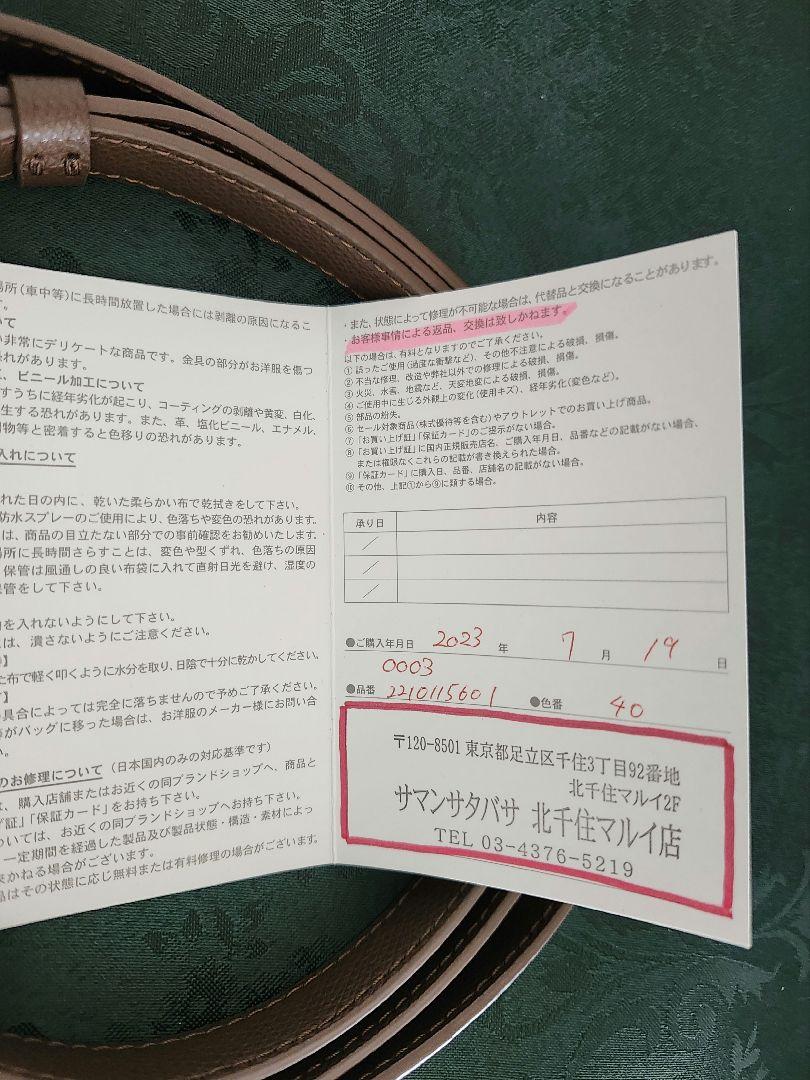 場所(車中等)に長時間放置した場合には剥離の原因になるこ
す。
いて
い非常にデリケートな商品です。金具の部分がお洋服を傷つ
恐れがあります。
、ビニール加工について
すうちに経年劣化が起こり、コーティングの剥離や黄変、白化、
生する恐れがあります。また、革、塩化ビニール、エナメル、
物等と密着すると色移りの恐れがあります。
入れについて
れた日の内に、乾いた柔らかい布で乾拭きをして下さい。
防水スプレーのご使用により、色落ちや変色の恐れがあります。
は、商品の目立たない部分での事前確認をお勧めいたします。
場所に長時間さらすことは、変色や型くずれ、色落ちの原因
保管は風通しの良い布袋に入れて直射日光を避け、湿度の
保管をして下さい。
物を入れないようにして下さい。
には、潰さないようにご注意ください。
】
た布で軽く叩くように水分を取り、日陰で十分に乾かしてください。
】
の具合によっては完全に落ちませんので予めご了承ください。
等がバッグに移った場合は、お洋服のメーカー様にお問い合
い。
のお修理について(日本国内のみの対応基準です)
は、購入店舗またはお近くの同ブランドショップへ、商品と
げ証」「保証カード」をお持ち下さい。
については、お近くの同ブランドショップへお持ち下さい。
一定期間を経過した製品及び製品状態・構造・素材によっ
来かねる場合がございます。
品はその状態に応じ無料または有料修理の場合がございます。
・また、状態によって修理が不可能な場合は、代替品と交換になることがあります。
・お客様事情による返品、交換は致しかねます。
以下の場合は、有料となりますのでご了承ください。
① 誤ったご使用(過度な衝撃など)、その他不注意による破損、損傷。
② 不当な修理、改造や弊社以外での修理による破損、損傷。
③ 火災、水害、地震など、天変地変による破損、損傷。
④ ご使用中に生じる外観上の変化(使用キズ)、経年劣化(変色など)。
⑤ 部品の紛失。
⑥ セール対象商品(株式優待等を含む)やアウトレットでのお買い上げ商品。
⑦ 「お買い上げ証」「保証カード」のご提示がない場合。
⑧ 「お買い上げ証」に国内正規販売店名、ご購入年月日、品番などの記載がない場合、
または権限なくこれらの記載が書き換えられた場合。
⑨ 「保証カード」に購入日、品番、店舗名の記載がない場合。
⑩ その他、上記①から⑨に類する場合。
承り日 内容
／
／
／
●ご購入年月日 2023 年 7 月 19 日
0003
●品番 2210115601 ●色番 40
〒120-8501 東京都足立区千住3丁目92番地
北千住マルイ2F
サマンサタバサ 北千住マルイ店
TEL 03-4376-5219